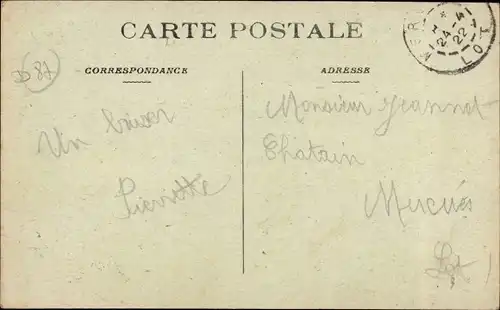 CARTE POSTALE
CORRESPONDANCE
ADRESSE
MER
24-4
22
LOT
D 87
Un baiser
Pierrette
Monsieur Jeannot
Chatain
Mercuès
Lot